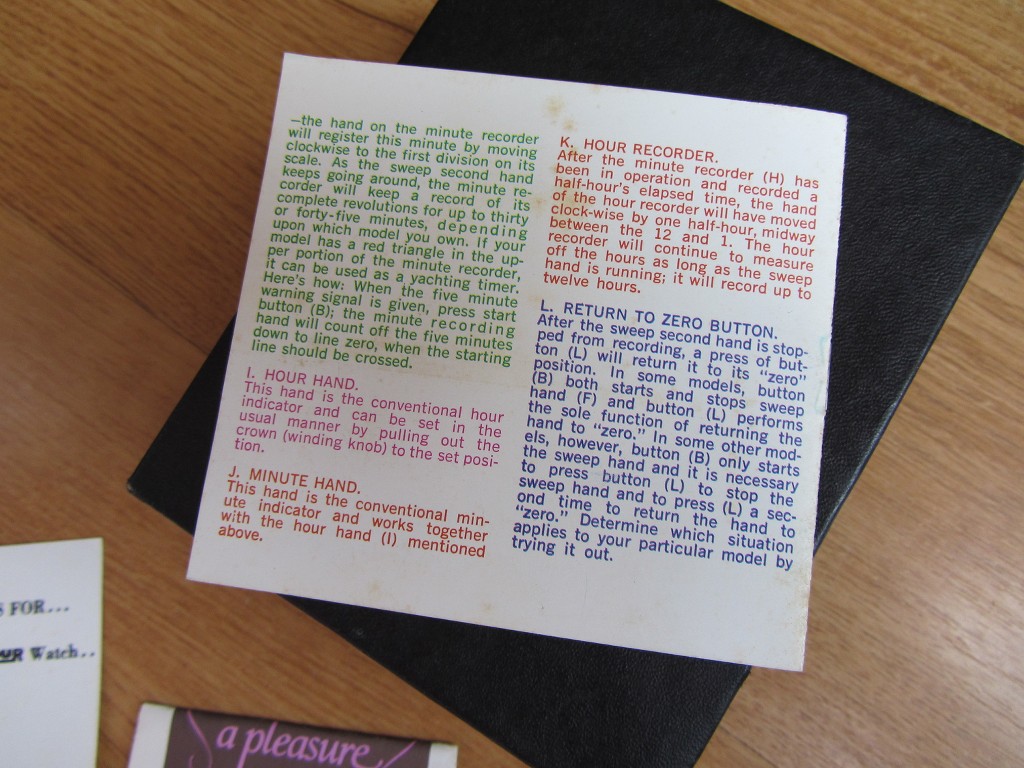 —the hand on the minute recorder
will register this minute by moving
clockwise to the first division on its
scale. As the sweep second hand
keeps going around, the minute re-
corder will keep a record of its
complete revolutions for up to thirty
or forty-five minutes, depending
upon which model you own. If your
model has a red triangle in the up-
per portion of the minute recorder,
it can be used as a yachting timer.
Here's how: When the five minute
warning signal is given, press start
button (B); the minute recording
hand will count off the five minutes
down to line zero, when the starting
line should be crossed.
I. HOUR HAND.
This hand is the conventional hour
indicator and can be set in the
usual manner by pulling out the
crown (winding knob) to the set posi-
tion.
J. MINUTE HAND.
This hand is the conventional min-
ute indicator and works together
with the hour hand (I) mentioned
above.
K. HOUR RECORDER.
After the minute recorder (H) has
been in operation and recorded a
half-hour's elapsed time, the hand
of the hour recorder will have moved
clock-wise by one half-hour, midway
between the 12 and 1. The hour
recorder will continue to measure
off the hours as long as the sweep
hand is running; it will record up to
twelve hours.
L. RETURN TO ZERO BUTTON.
After the sweep second hand is stop-
ped from recording, a press of but-
ton (L) will return it to its "zero"
position. In some models, button
(B) both starts and stops sweep
hand (F) and button (L) performs
the sole function of returning the
hand to "zero." In some other mod-
els, however, button (B) only starts
the sweep hand and it is necessary
to press button (L) to stop the
sweep hand and to press (L) a sec-
ond time to return the hand to
"zero." Determine which situation
applies to your particular model by
trying it out.
FOR...
Watch..
a pleasure